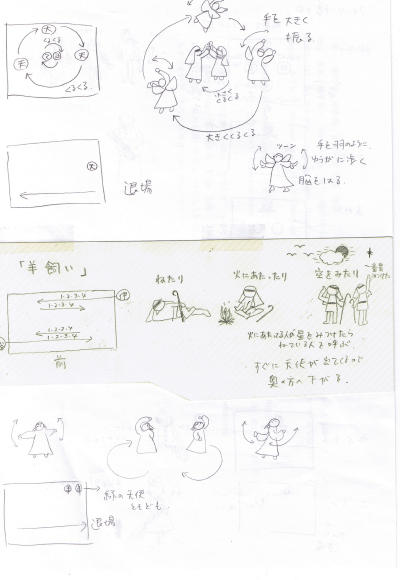 手を大きく
振る
天
天
天
天
くるくる
くるくる
大きく
くるくる
大きくくるくる
天
退場
ツーン
手を羽のように
ゆうがに歩く
胸をはる
「羊飼い」
1-2-3-4
1-2-3-4
1-2-3-4
1-2-3-4
前
ねたり
火にあたったり
空をみたり
火にあたってる人が星をみつけたら
ねている人を呼ぶ
すぐに天使が出てくるので
奥の方へ下がる
緑の天使
ともども
退場